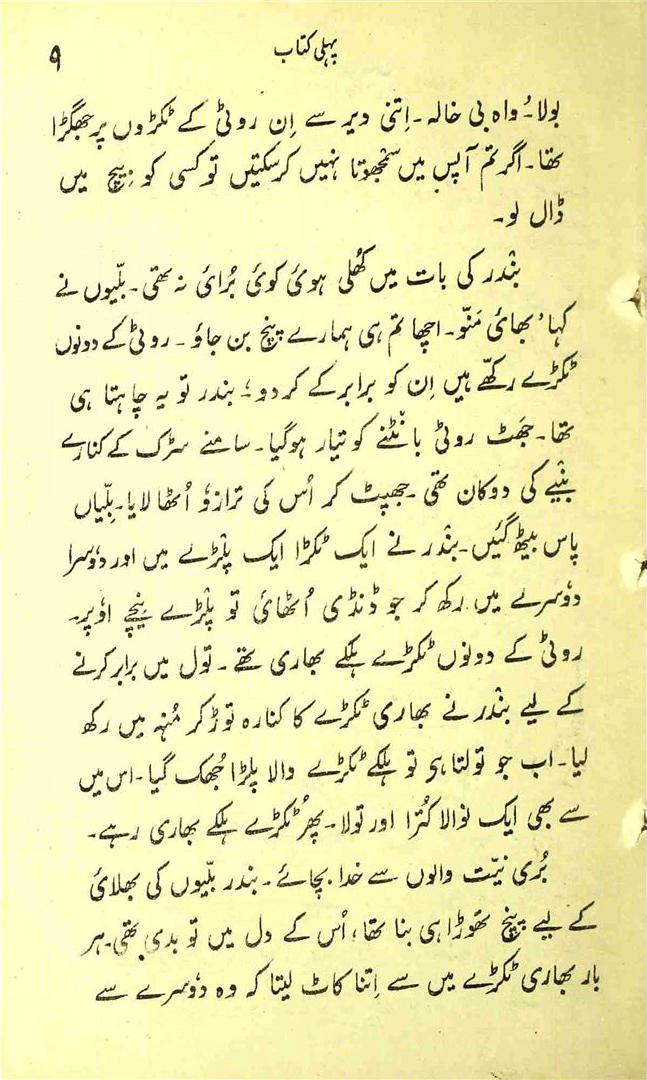 پہلی کتاب
۹
بولا۔ ُواہ بی خالہ۔ اِتنی دیر سے اِن روٹی کے ٹکڑوں پر جھگڑا
تھا۔ اگر تم آپس میں سمجھوتا نہیں کرسکتیں تو کسی کو بِیچ میں
ڈال لو۔
بنْدر کی بات میں کھُلی ہوئ کوئ بُرائ نہ تھی۔ بلّیوں نے
کہا ُبھائ مَنّو۔ اچھا تم ہی ہمارے پنچ بن جاؤ۔ روٹی کے دونوں
ٹکڑے رکھّے ہیں اِن کو برابر کے کر دو، بندر تو یہ چاہتا ہی
تھا۔ جھَٹ روٹی بانْٹنے کو تیار ہوگیا۔ سامنے سڑک کے کنارے
بنْیے کی دوکان تھی۔ جھپٹ کر اُس کی ترازو اُٹھا لایا۔ بلّیاں
پاس بیٹھ گئیں۔ بنْدر نے ایک ٹکڑا ایک پلْڑے میں اور دوٗسرا
دوٗسرے میں رکھ کر جو ڈنڈی اُٹھائ تو پلْڑے نِیچے اوٗپر۔
روٹی کے دونوں ٹکڑے ہلکے بھاری تھے۔ تول میں برابر کرنے
کے لیے بنْدر نے بھاری ٹکڑے کا کنارہ توڑ کر مُنہ میں رکھ
لیا۔ اب جو تولتا ہی تو ہلکے ٹکڑے والا پلڑا جُھک گیا۔ اس میں
سے بھی ایک نوالا کُترا اور تولا۔ پھر ٹکڑے ہلکے بھاری رہے۔
بُری نیّت والوں سے خدا بچائے۔ بندر بلّیوں کی بھلائ
کے لیے پنچ تھوڑا ہی بنا تھا، اُس کے دل میں تو بدی تھی۔ ہر
بار بھاری ٹکڑے میں سے اِتنا کاٹ لیتا کہ وہ دوٗسرے سے